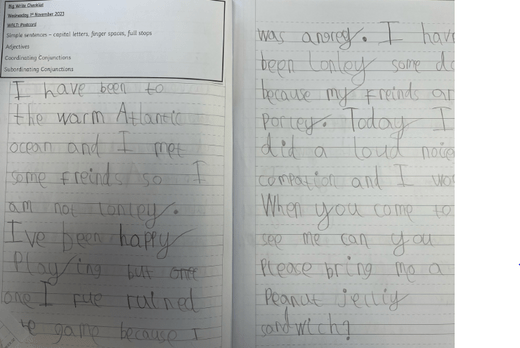 Big Write Checklist
Wednesday 1st November 2023
WALT: Postcard
Simple sentences – capital letters, finger spaces, full stops
Adjectives
Coordinating Conjunctions
Subordinating Conjunctions
I have been to
the warm Atlantic
ocean and I met
some freinds so I
am not lonley.
I've been happy
Playing but
one I rued
game because I
was angrey. I hav
been lonley some d
because my freinds ar
Today I
did a loud
and I wo
When you come to
see me can you
Please bring me a
Peanut jelly
sandwich?